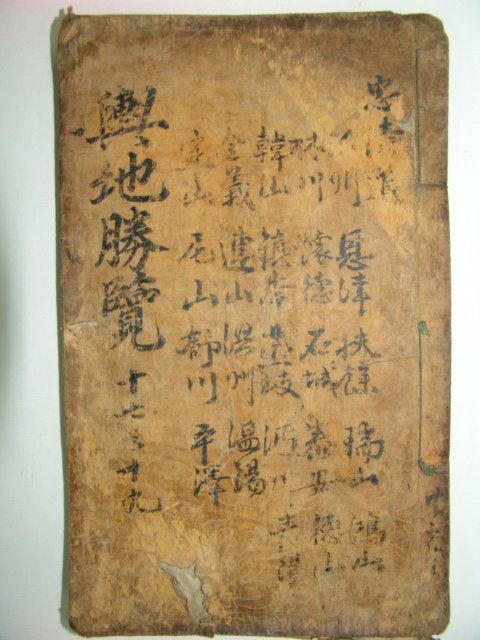 忠清道
公州 恩津 扶餘 瑞山 鴻山
林川 懷德 石城 泰安 德山
韓山 鎮岑 燕岐 沔川 青陽
全義 連山 洪州 温陽
定山 尼山 舒川 平澤
輿地勝覽 十七之十九